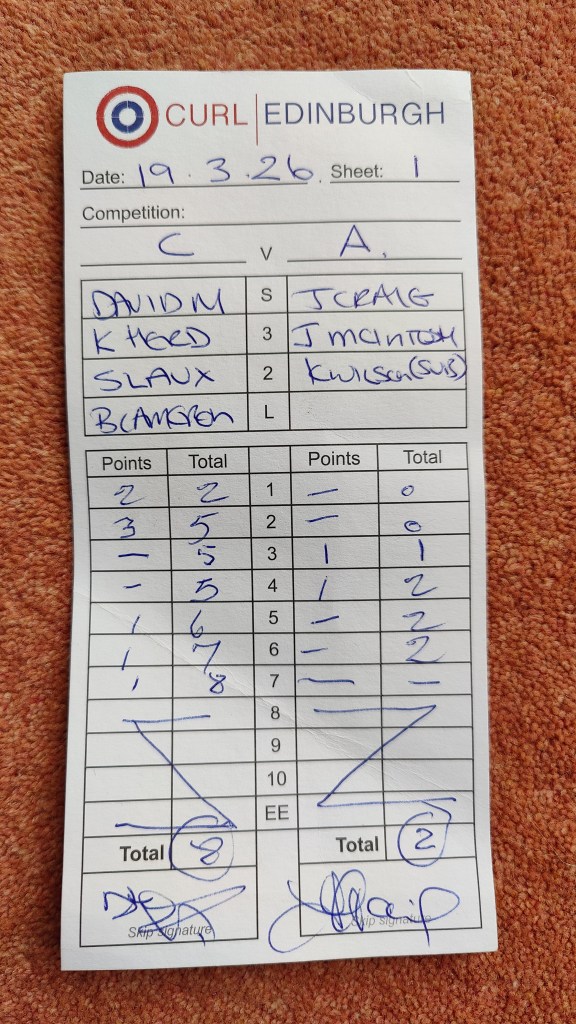 CURL EDINBURGH
Date: 19.3.26. Sheet: 1
Competition:
C V A.
DAVID M S J CRAIG
K HERD 3 J MCINTOSH
S LAUX 2 K WILSON (SUB)
B CAMERON L
Points Total Points Total
2 2 1 — 0
3 5 2 — 0
— 5 3 1 1
- 5 4 1 2
1 6 5 — 2
1 7 6 — 2
1 8 7 — —
8
9
10
EE
Total 8 Total 2
Skip signature Skip signature